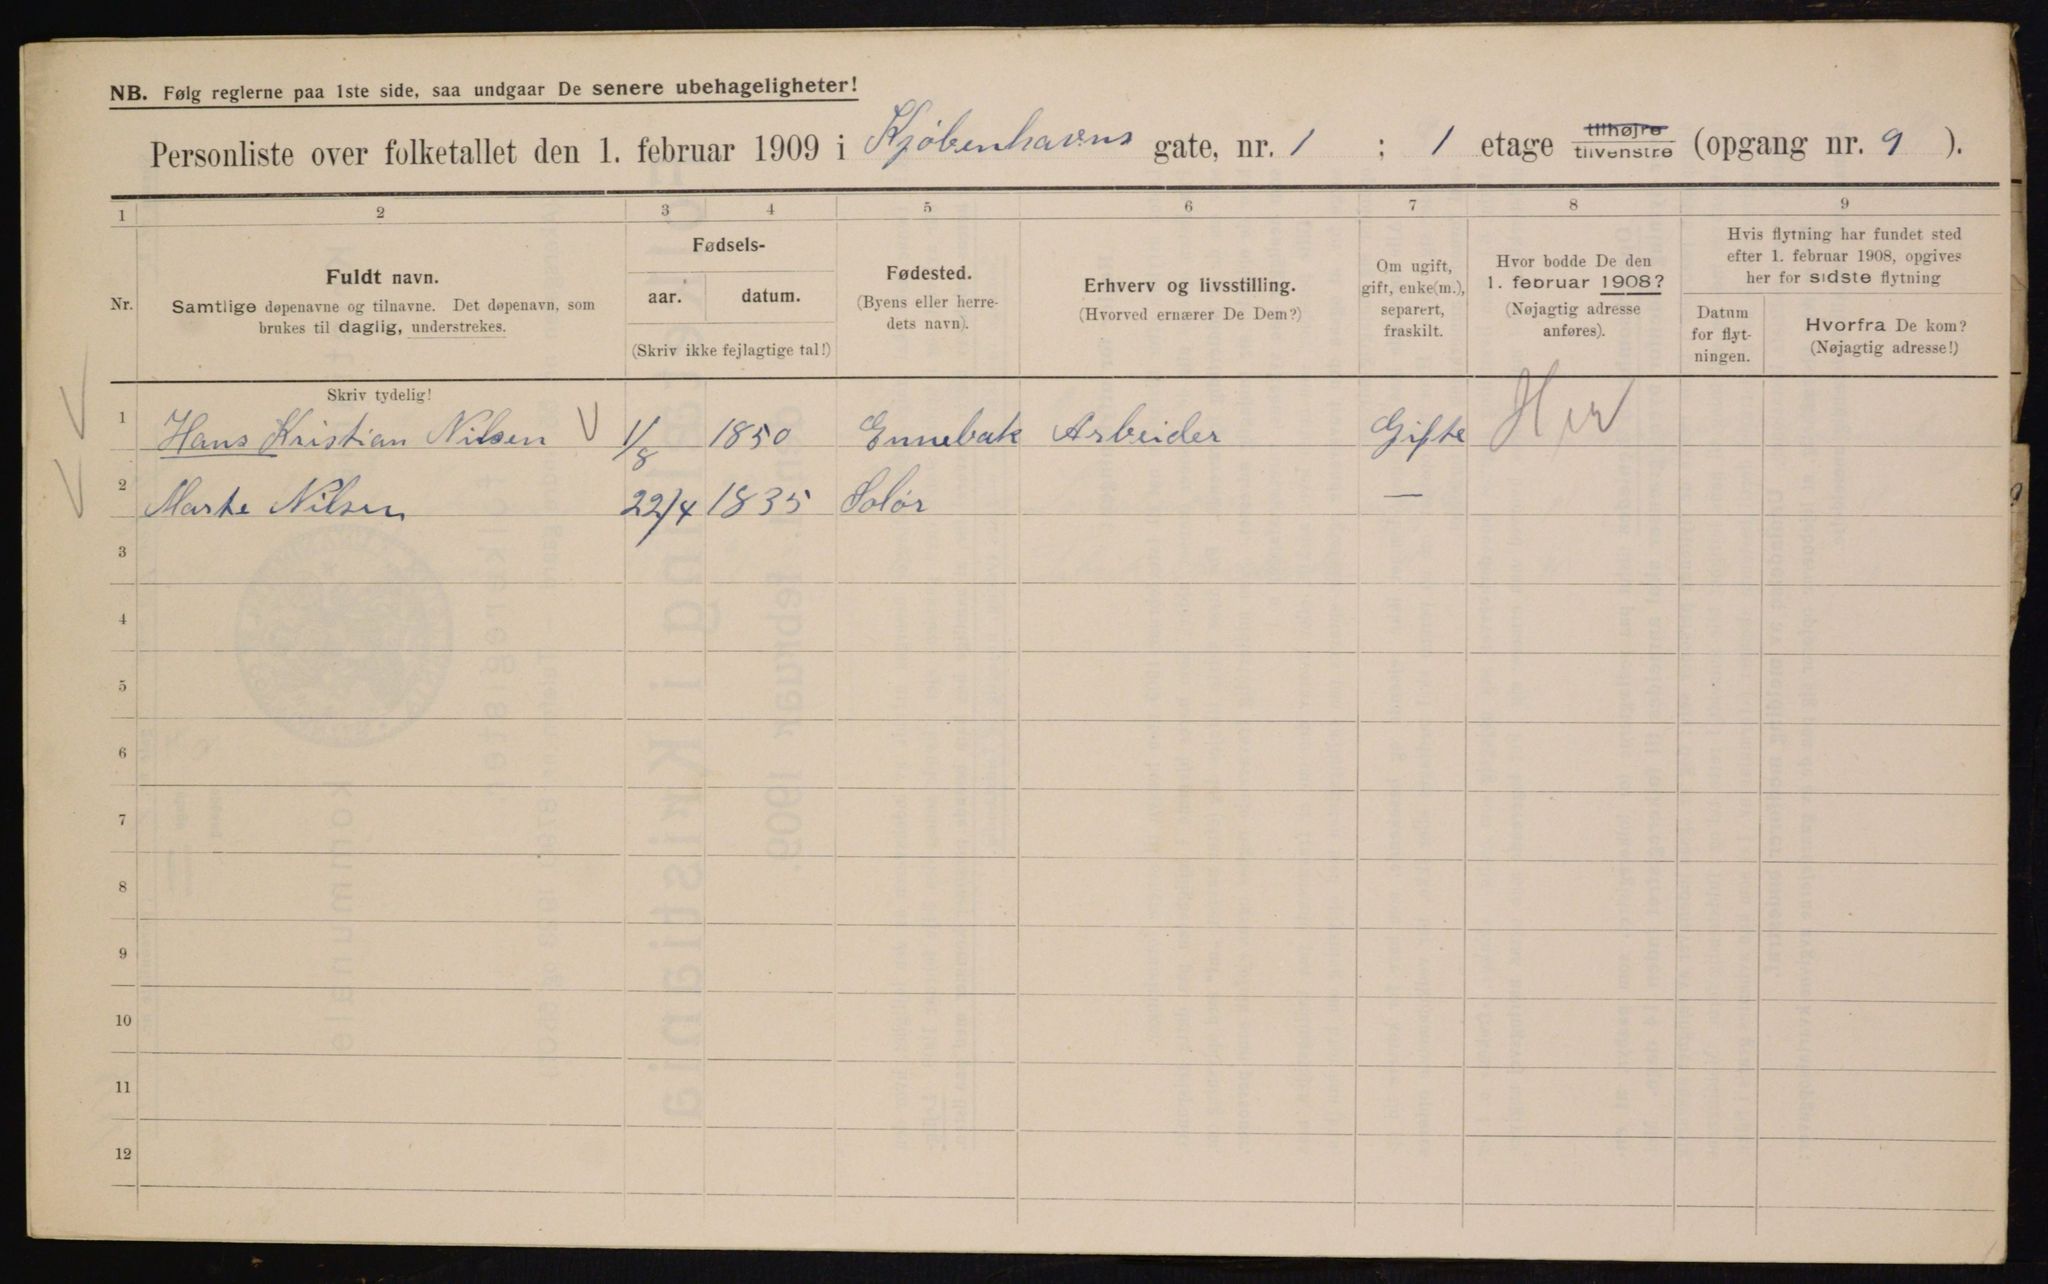 NB. Følg reglerne paa 1ste side, saa undgaar De senere ubehageligheter!
Personliste over folketallet den 1. februar 1909 i Kjøbenhavns gate, nr. 1 ; 1 etage tilhøjre tilvenstre (opgang nr. 9 ).
1 2 3 4 5 6 7 8 9
Nr.
Fuldt navn.
Samtlige døpenavne og tilnavne. Det døpenavn, som
brukes til daglig, understrekes.
Fødsels-
aar. datum.
(Skriv ikke fejlagtige tal!)
Fødested.
(Byens eller herre-
dets navn).
Erhverv og livsstilling.
(Hvorved ernærer De Dem?)
Om ugift,
gift, enke(m.),
separert,
fraskilt.
Hvor bodde De den
1. februar 1908?
(Nøjagtig adresse
anføres).
Hvis flytning har fundet sted
efter 1. februar 1908, opgives
her for sidste flytning
Datum
for flyt-
ningen.
Hvorfra De kom?
(Nøjagtig adresse!)
Skriv tydelig!
1 Hans Kristian Nilsen 1/8 1850 Ennebak Arbeider Gifte Her
2 Marte Nilsen 22/4 1835 Solør —
3
4
5
6
7
8
9
10
11
12